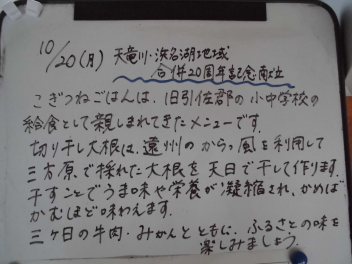 10/20(月) 天竜川・浜名湖地域
合併20周年記念献立
こぎつねごはんは、旧引佐郡の小中学校の
給食として親しまれてきたメニューです。
切り干し大根は、遠州のからっ風を利用して
三方原で採れた大根を天日で干して作ります。
干すことでうま味や栄養が凝縮され、かめば
かむほど味わえます。
三ヶ日の牛肉・みかんとともに、ふるさとの味を
楽しみましょう。